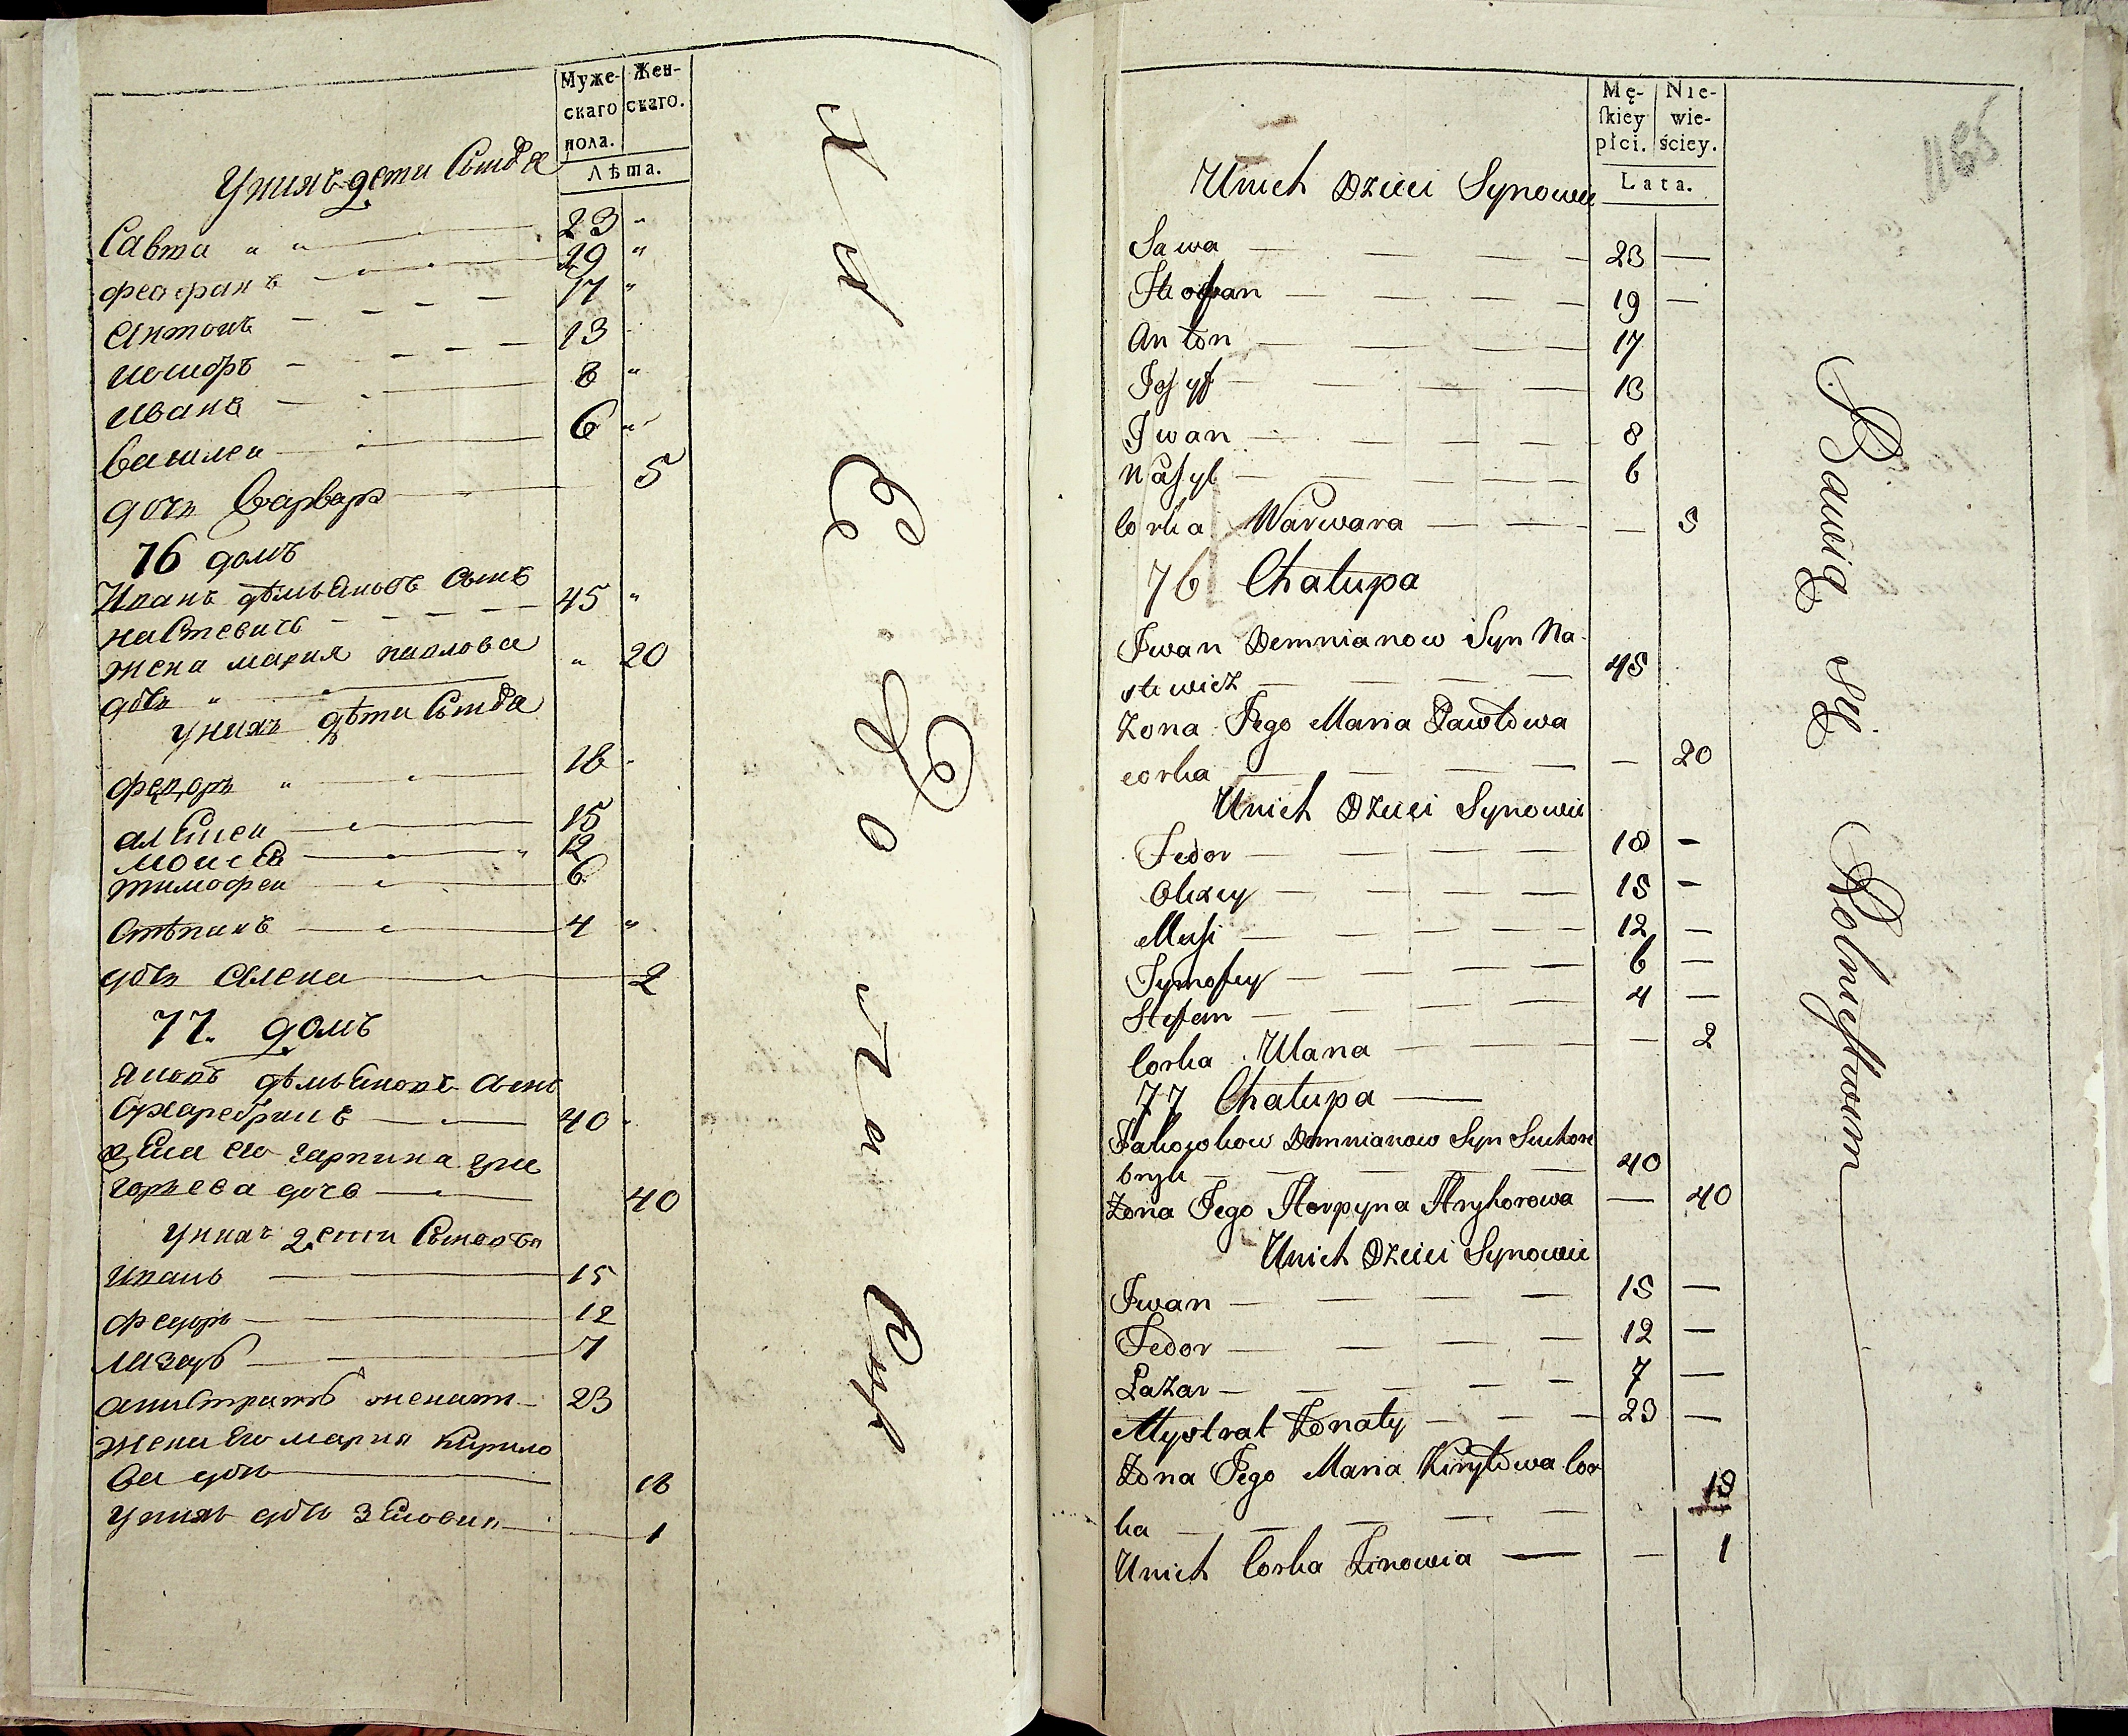 Муже-
скаго
пола.
Жен-
скаго.
Лѣта.
Унихъ дети Сынова
Савта 23
Феофанъ 19
Антонъ 17
Иосифъ 13
Иванъ 8
Василеи 6
дочь Варвара 5
76 домъ
Иванъ дѣмьяновъ Сынъ
настевичъ 45
жена мария павлова
дочь 20
Унихъ дѣти Сынова
Федоръ 18
алексеи 15
Моисеи 12
тимофеи 6
Стѣпанъ 4
дочь Олена 2
77. домъ
Яковъ дѣмьяновъ Сынъ
Сухаребрикъ 40
жена его гарпина гри
горьева дочь 40
Унихъ дети Сыновья
Иванъ 15
Федоръ 12
Лазарь 7
алистратъ женатъ 23
Жена Его мария Кирило
ва дочь 18
Унихъ дочь Зеновия 1
Mę-
ſkiey
płci.
Nie-
wie-
ściey.
Lata.
1165
Unich Dzieci Synowie
Sawa 23
Teofan 19
Anton 17
Josyf 13
Iwan 8
Wasyl 6
Corka Warwara 5
76 Chałupa
Iwan Demnianow Syn Na-
stewicz 45
Zona Jego Maria Pawłowa
corka 20
Unich Dzieci Synowie
Fedor 18
Olexey 15
Musi 12
Tymofey 6
Stefan 4
Corka Ulana 2
77 Chałupa
Jakow Demnianow Syn Suchore
bryk 40
Zona Jego Horpyna Hryhorowa 40
Unich Dzieci Synowie
Iwan 15
Fedor 12
Łazar 7
Alystrat Zonaty 23
Zona Jego Maria Kiryłowa Cor
ka 18
Unich Corka Zinowia 1
Bawią się Rolnictwom